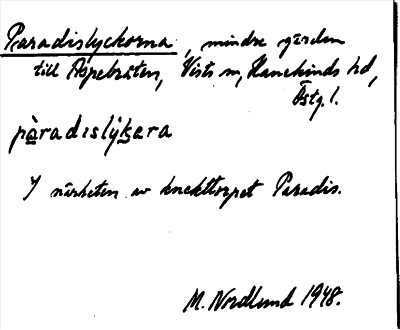 Paradislyckorna, mindre gärden
till Aspebråten, Vists sn, Hanekinds hd,
Östg. l.
pàradislýkara
I närheten av knekttorpet Paradis.
M. Nordlund 1948.